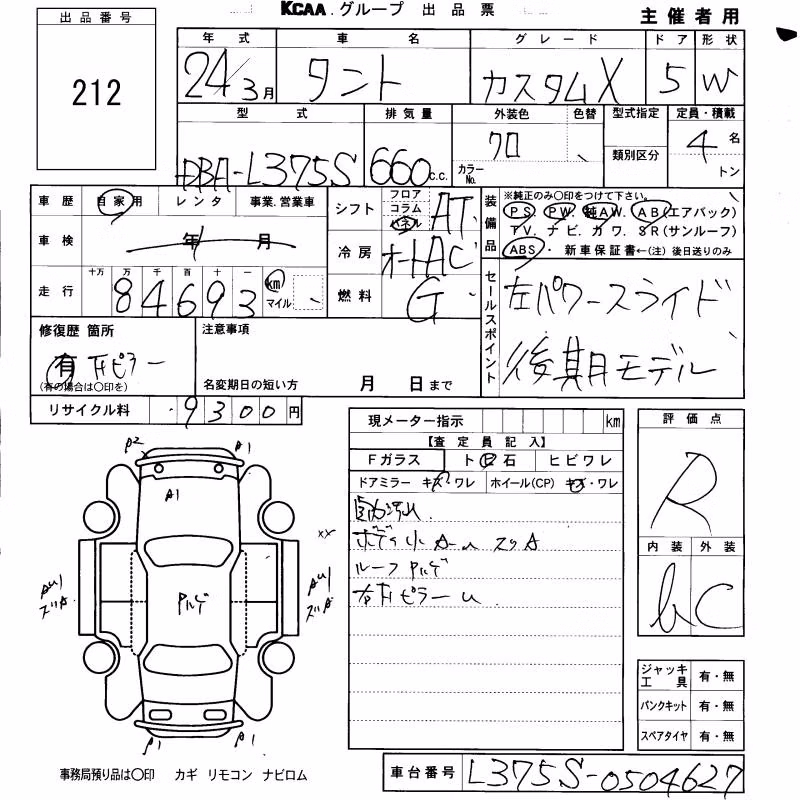 KCAA.グループ 出品票
主催者用
出品番号
212
年式 車名 グレード ドア 形状
24/3月 タント カスタムX 5 W
型式 排気量 外装色 色替 型式指定 定員・積載
DBA-L375S 660c.c. クロ カラーNo. 類別区分 4名 トン
車歴 自家用 レンタ 事業.営業車
シフト フロア コラム パネル AT
装備品 ※純正のみ○印をつけて下さい。
PS PW 純AW. AB(エアバック)
TV. ナビ. カワ. SR(サンルーフ)
ABS・ 新車保証書←(注)後日送りのみ
車検 年 月
冷房 オートAC
走行 十万 万 千 百 十 一
84693 km マイル
燃料 G
セールスポイント
左パワースライド
後期モデル
修復歴 箇所
有 右ピラー
(有の場合は○印を)
注意事項
名変期日の短い方 月 日まで
リサイクル料 9300円
現メーター指示 km
【査定員記入】
Fガラス ト 石 ヒビワレ
ドアミラー キズ・ワレ ホイール(CP) キズ・ワレ
ボデー小A-U スリA
ルーフPハゲ
右ピラーU
評価点
R
内装 外装
b C
P2 A1
A1
AU1 ズリA
Pハゲ
××
AU1 ズリA
P1 A1
ジャッキ工具 有・無
パンクキット 有・無
スペアタイヤ 有・無
事務局預り品は○印 カギ リモコン ナビロム
車台番号 L375S-0504627